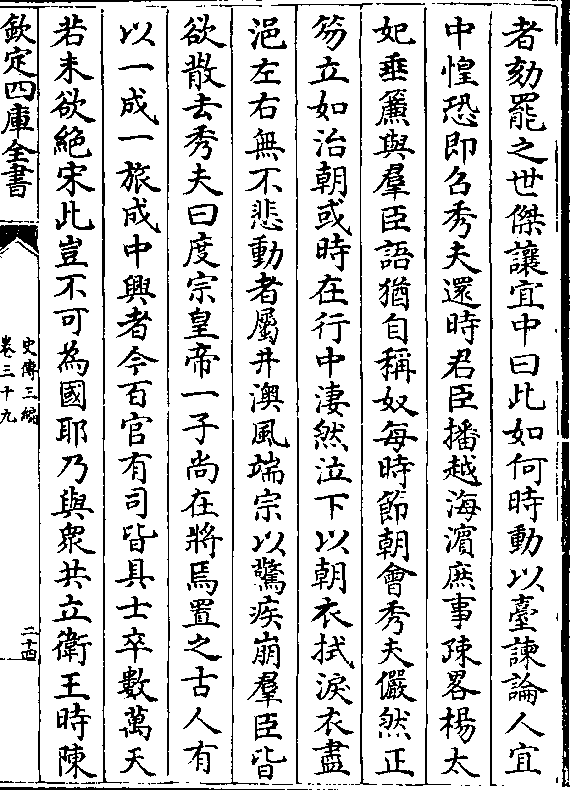 者劾罷之世傑讓宜中曰此如何時動以臺諫論人宜
中惶恐即召秀夫還時君臣播越海濵庶事疎畧楊太
妃垂簾與羣臣語猶自稱奴每時節朝會秀夫儼然正
笏立如治朝或時在行中凄然泣下以朝衣拭淚衣盡
浥左右無不悲動者屬井澳風端宗以驚疾崩羣臣皆
欲散去秀夫曰度宗皇帝一子尚在將焉置之古人有
以一成一旅成中興者今百官有司皆具士卒數萬天
若未欲絶宋此豈不可為國耶乃與衆共立衛王時陳
欽定四庫全書
史傳三編
卷三十九
二十四